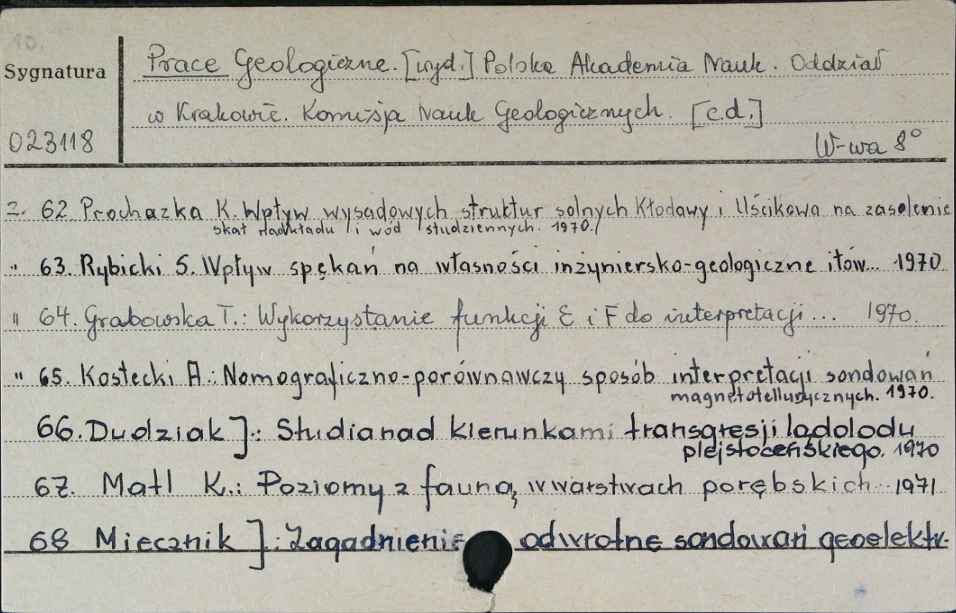 10.
Prace Geologiczne. [wyd.] Polska Akademia Nauk. Oddział
Sygnatura
w Krakowie. Komisja Nauk Geologicznych. [c.d.]
023118
W-wa 8°
z. 62 Prochazka K. Wpływ wysadowych struktur solnych Kłodawy i Uścikowa na zasolenie
skał nadkładu i wód studziennych. 1970.
" 63. Rybicki S. Wpływ spękań na własności inżyniersko-geologiczne iłów... 1970
" 64. Grabowska T.: Wykorzystanie funkcji E i F do interpretacji... 1970.
" 65. Kostecki A.: Nomograficzno-porównawczy sposób interpretacji sondowań
magnetotellurycznych. 1970.
66. Dudziak J.: Studia nad kierunkami transgresji lądolodu
plejstoceńskiego. 1970
67. Matl K.: Poziomy z fauną w warstwach porębskich... 1971
68 Miecznik J.: Zagadnienie odwrotne sondowań geoelektr.